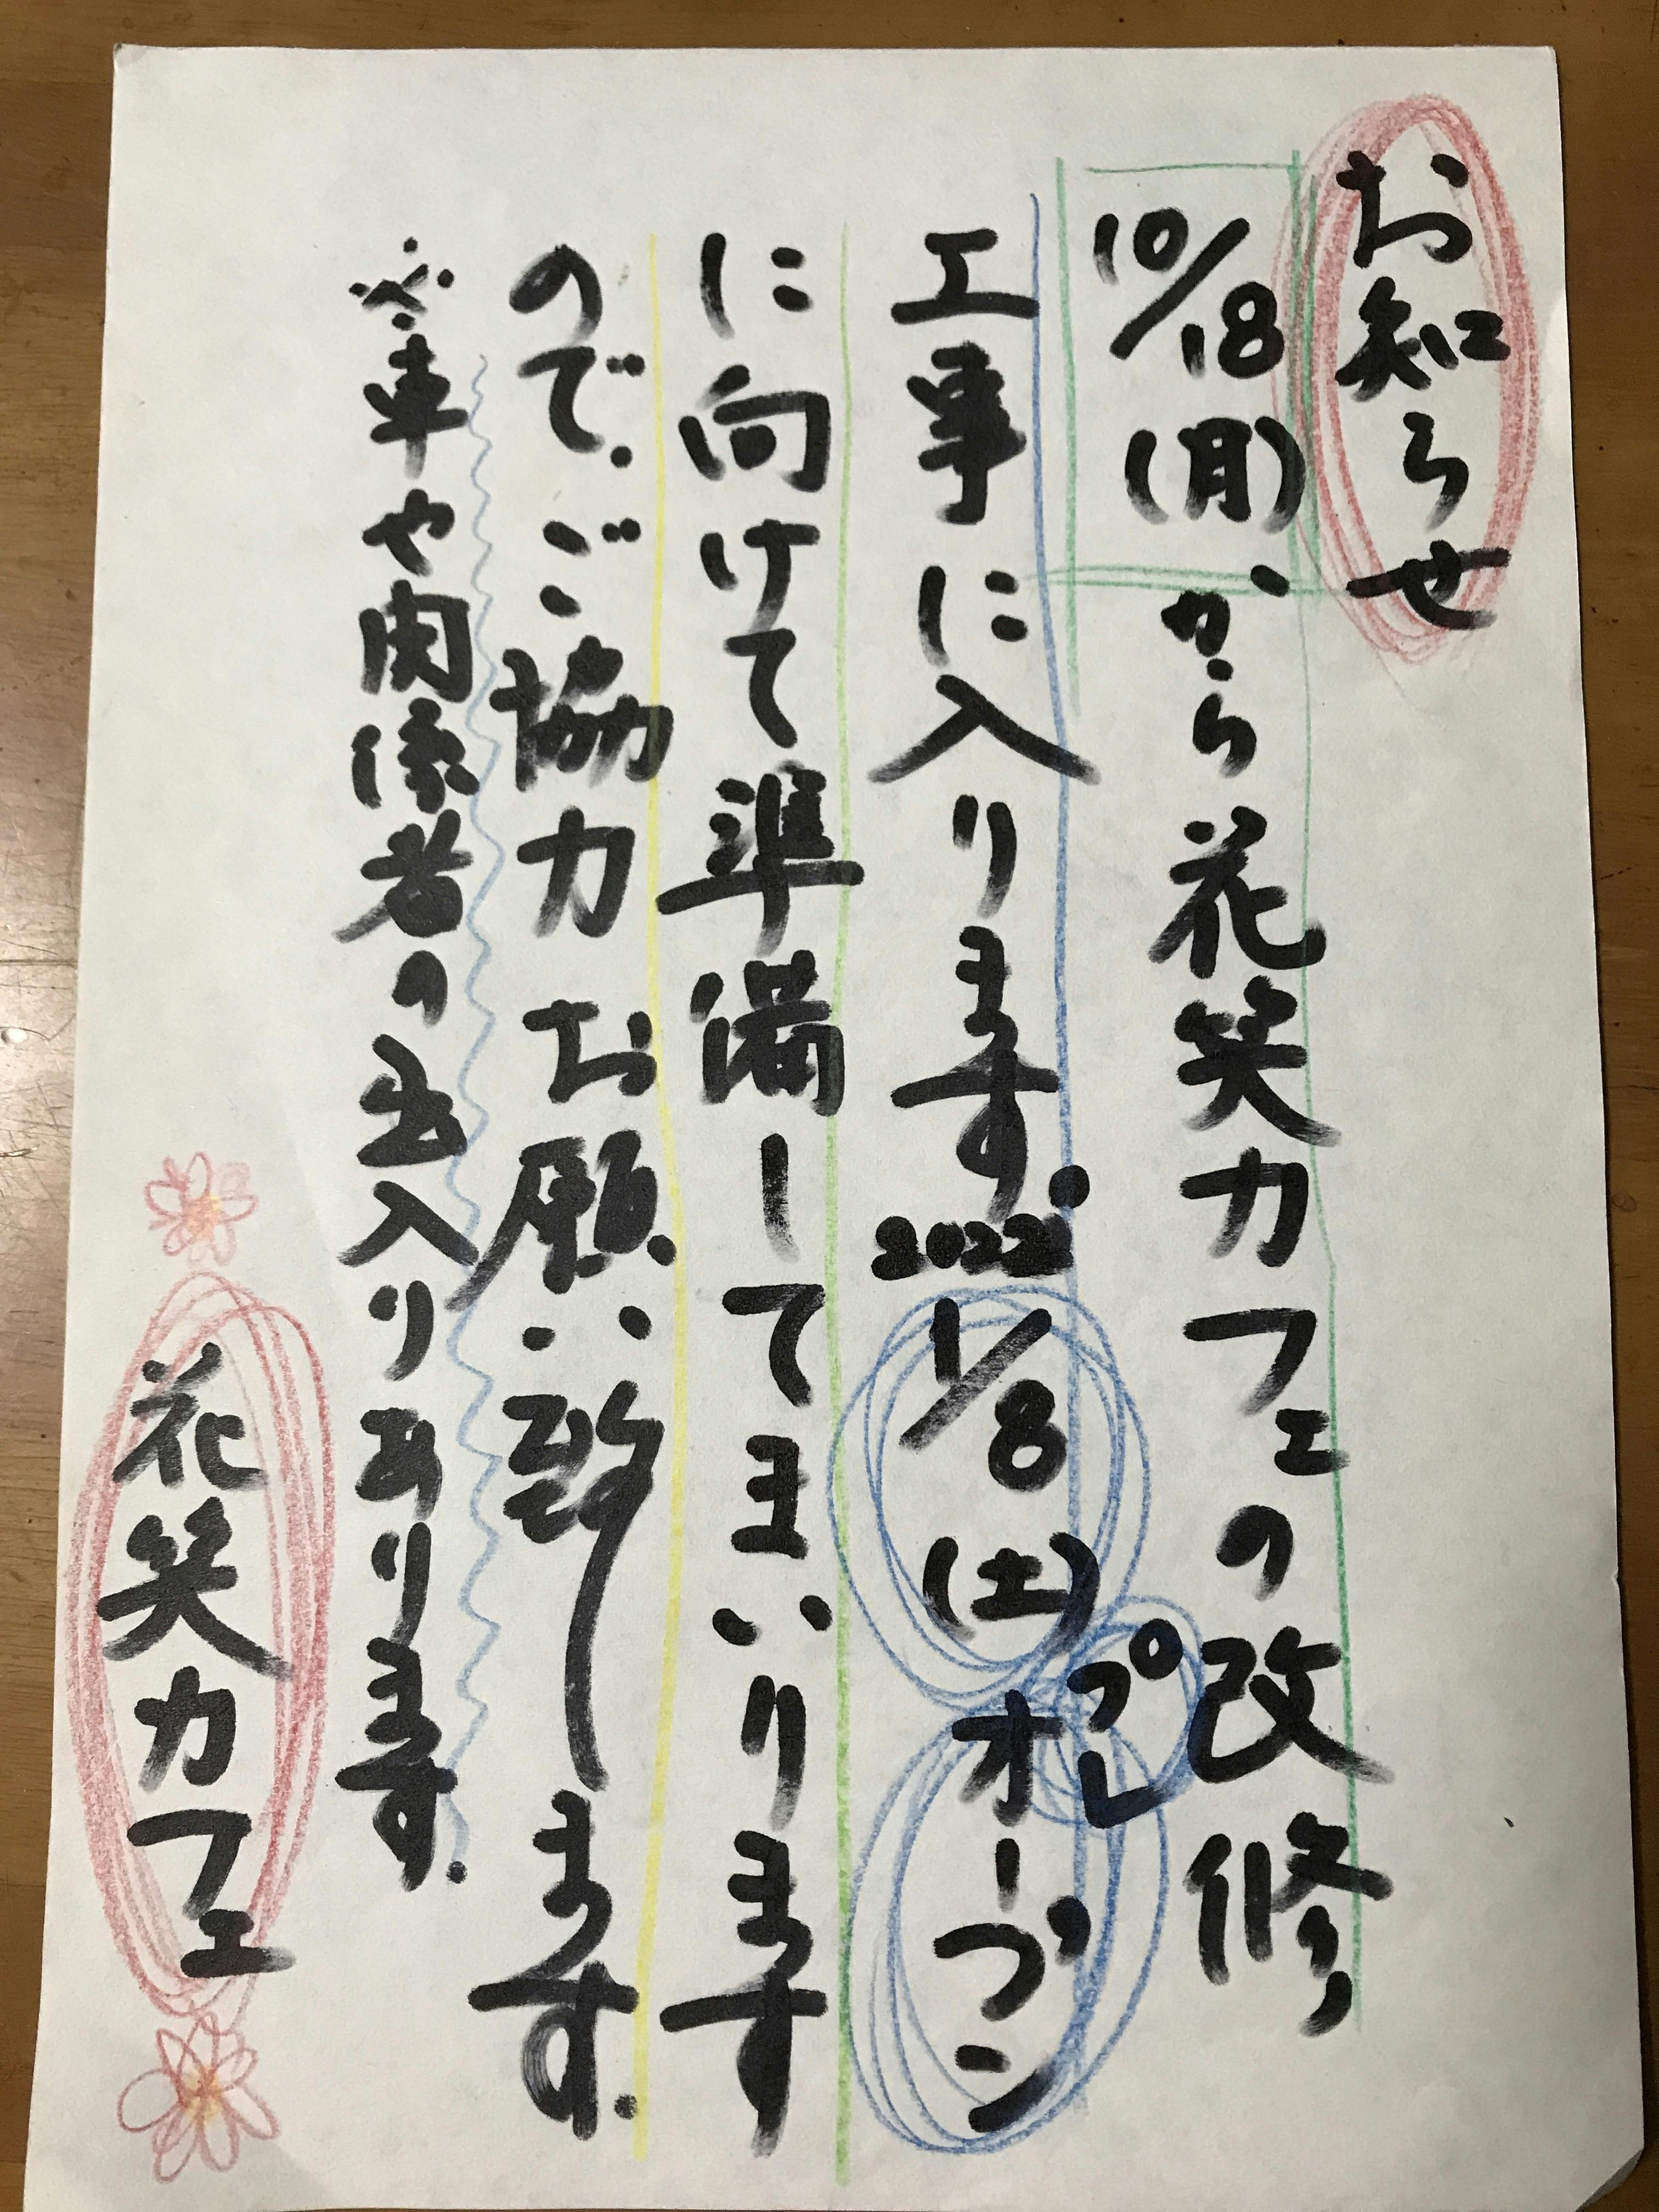 お知らせ
10/18(月)から花笑カフェの改修
工事に入ります。2022 1/8(土)プレオープン
に向けて準備してまいります
ので、ご協力お願い致します。
※車や関係者の出入りあります。
花笑カフェ